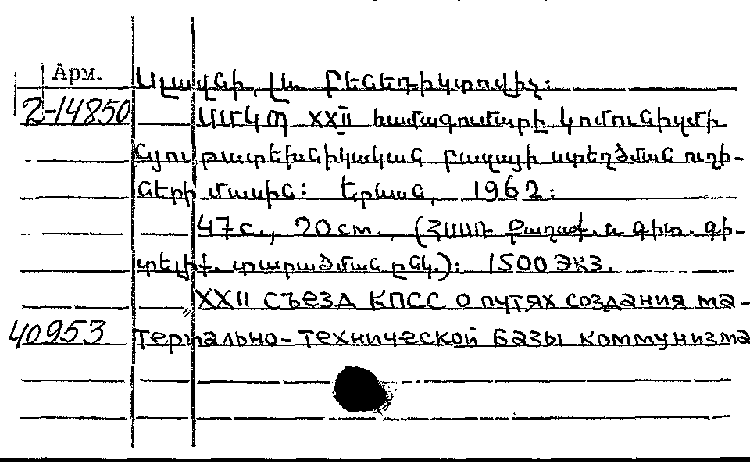 Арм.
Աղավնի, Լև Բենեդիկտովիչ։
2-14850 ՍՄԿՊ XXII համագումարը կոմունիզմի
նյութատեխնիկական բազայի ստեղծման ուղի-
ների մասին։ Երևան, 1962։
47с., 20см., (ՀՍՍՌ քաղաք. և գիտ. գի-
տելիք. տարածման ընկ.)։ 1500 экз.
XXII съезд КПСС о путях создания ма-
40953 териально-технической базы коммунизма